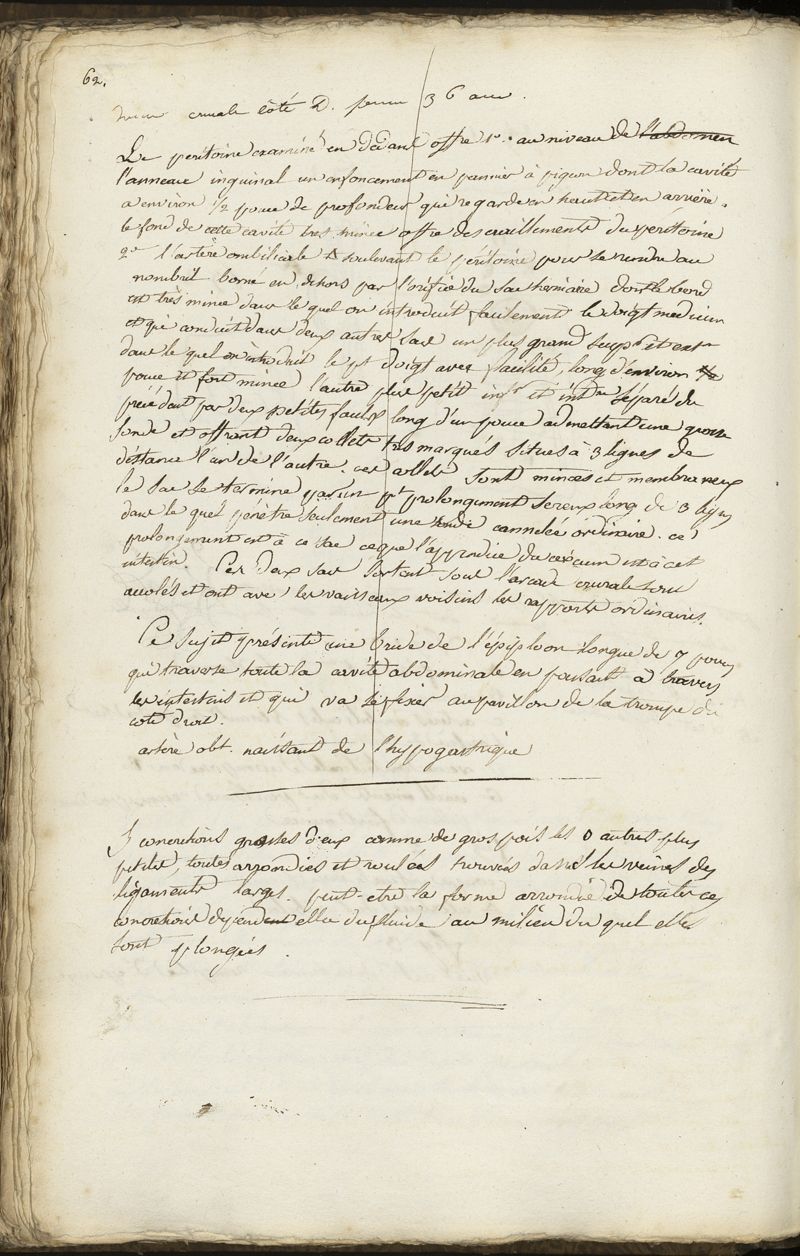 62.
crurale côté D. femme 36 ans.
Le peritoine examiné en dedans offre 1°. au niveau de l'abdomen
l'anneau inguinal un enfoncement en pannier à pigeon dont la cavité
a environ 1/2 pouce de profondeur qui regarde en haut et en arrière.
le fond de cette cavité très mince offre des eraillements du peritoine
2° l'artère ombilicale D soulevant le péritoine pour se rendre au
nombril borné en dehors par l'orifice du sac herniaire dont le bord
est très mince dans le quel on introduit facilement le doigt medium
et qui conduit dans deux autres sacs un plus grand supr. et extr.
dans le quel on introduit le pt doigt avec facilité, long d'environ
pouce et fort mince l'autre plus petit infr et intr séparé du
précédent par deux petites faulx long d'un pouce admettant une grosse
sonde et offrant deux collets très marqués situés à 3 lignes de
distance l'un de l'autre. ces collets sont minces et membraneux
le sac se termine par un pt prolongement sereux long de 3 lignes
dans le quel penètre seulement une sonde cannelée ordinaire. ce
prolongement est à ce sac ce que l'appendice du coecum est à cet
intestin. Ces deux sacs sortant sous l'arcade crurale sont
accolés et ont avec les vaisseaux voisins les rapports ordinaires.
Ce sujet présente une bride de l'épiploon longue de 7 pouces
qui traverse toute la cavité abdominale en passant à travers
les intestins et qui va se fixer au pavillon de la trompe du
coté droit.
artère obt. naissant de l'hypogastrique
concretions grosses deux comme de gros pois les autres plus
petites, toutes arrondies et roulées trouvées dans les veines des
ligaments larges. peut-etre la forme arrondie de toutes ces
concretions depend elle du fluide au milieu du quel elles
sont plongées.